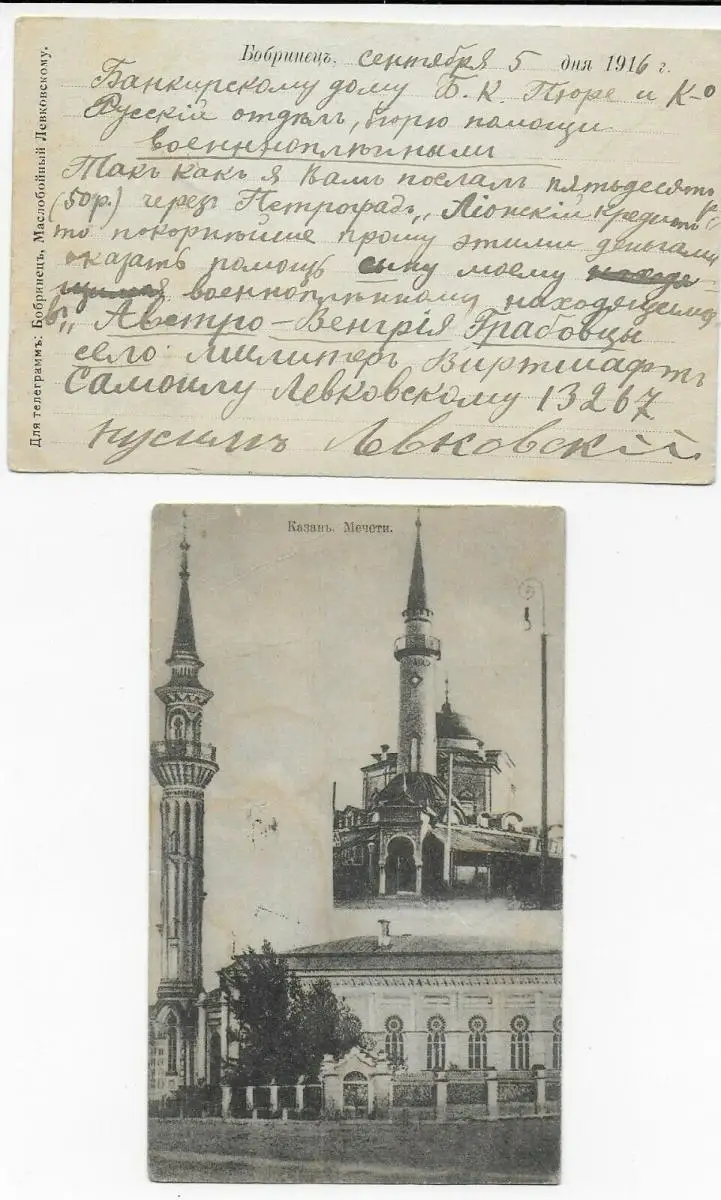 Для телеграммъ: Бобринецъ, Маслобойный Левковскому.
Бобринецъ, сентября 5 дня 1916 г.
Банкирскому дому Б. К. Пюре и К-о
Русскiй отдѣлъ, бюро помощи
военноплѣнными
Такъ какъ я Вамъ послалъ пятьдесятъ
(50р.) черезъ Петроградъ „Лiонскiй Кредитъ
то покорнѣйше прошу этими деньгами
оказать помощь сыну моему
военноплѣнному находящимся
въ „Австро-Венгрiя Грабовцы
село Милитеръ Виртшафтъ
Самоилу Левковскому 13267
Нусимъ Левковскiй
Казань. Мечети.